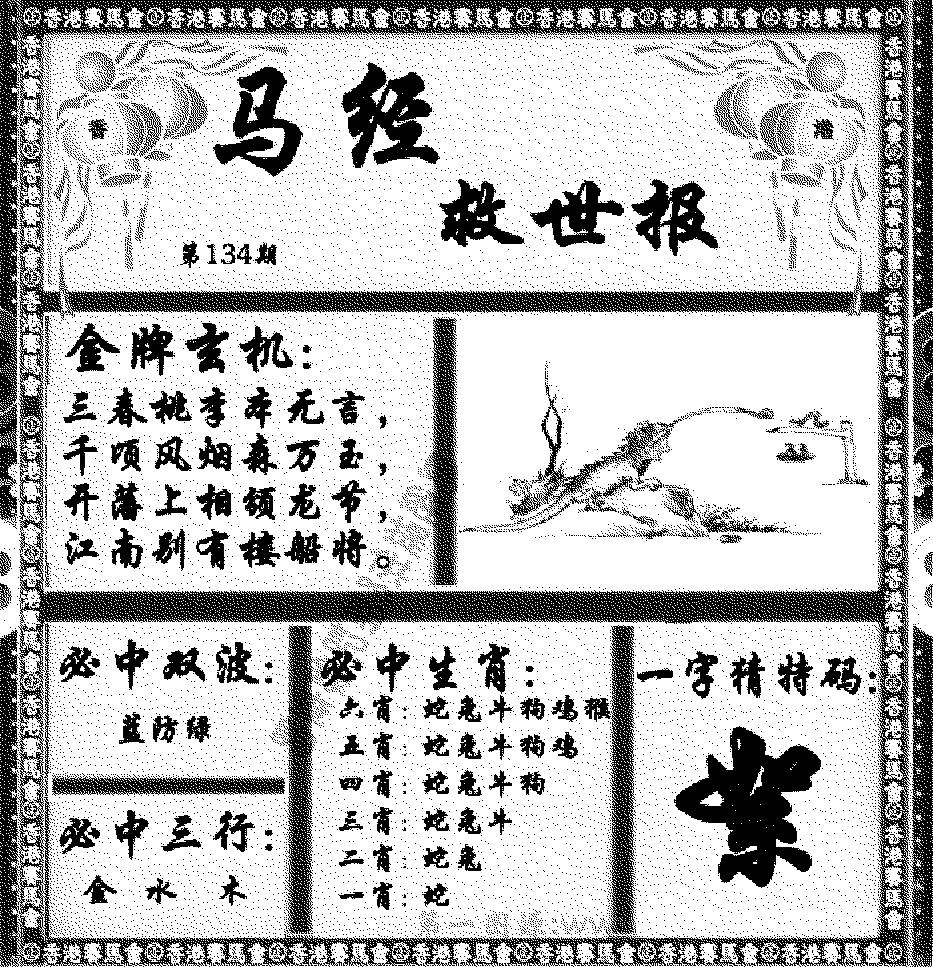 香港賽馬會 香港賽馬會 香港賽馬會 香港賽馬會 香港賽馬會 香港賽馬會 香港賽馬會
香
港
马经
救世报
第134期
金牌玄机：
三春桃李本无言，
千顷风烟森万玉，
开落上相领龙节，
江南别有楼船将。
必中双波：
蓝防绿
必中三行：
金 水 木
必中生肖：
六肖：蛇兔牛狗鸡猴
五肖：蛇兔牛狗鸡
四肖：蛇兔牛狗
三肖：蛇兔牛
二肖：蛇兔
一肖：蛇
一字猜特码：
柴
香港賽馬會 香港賽馬會 香港賽馬會 香港賽馬會 香港賽馬會 香港賽馬會 香港賽馬會